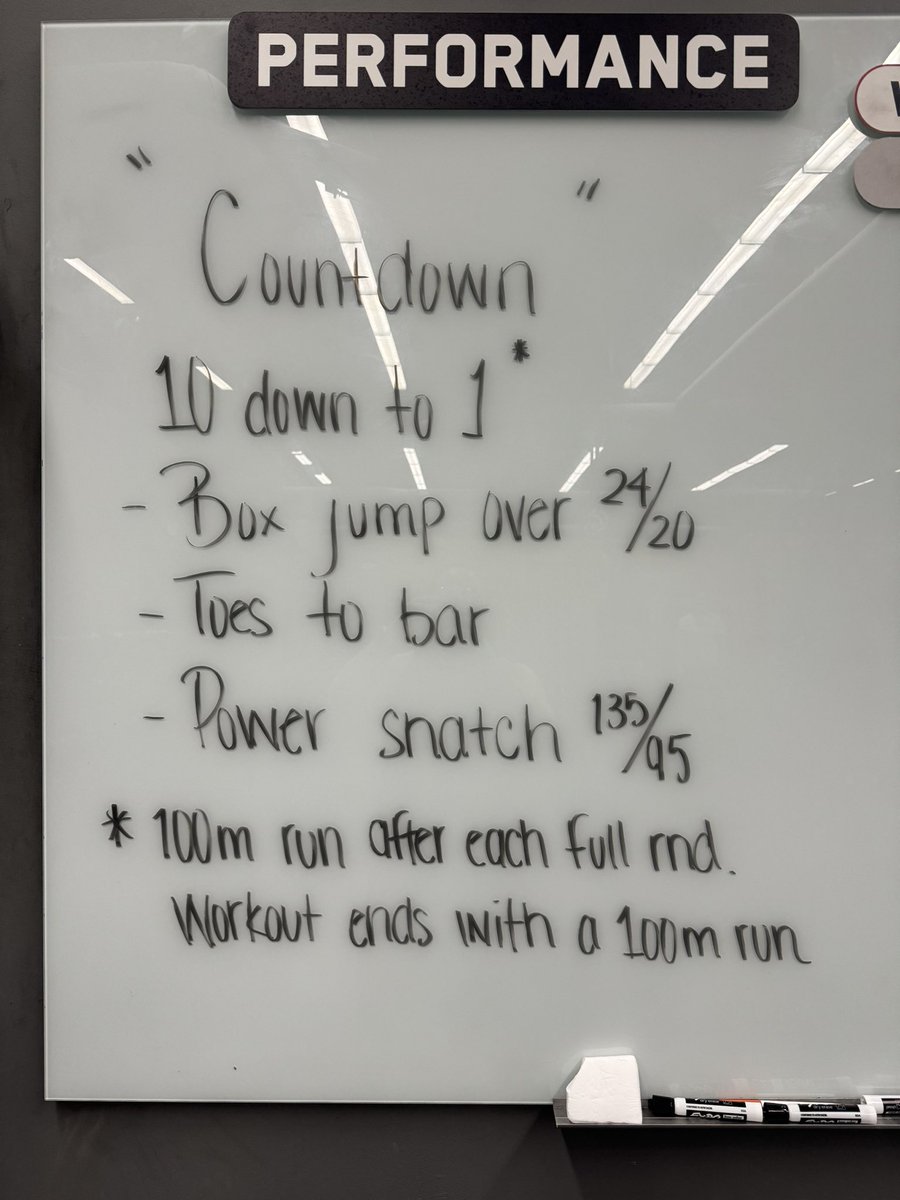 PERFORMANCE
"Countdown"
10 down to 1*
- Box jump over 24/20
- Toes to bar
- Power snatch 135/95
* 100m run after each full rnd.
Workout ends with a 100m run